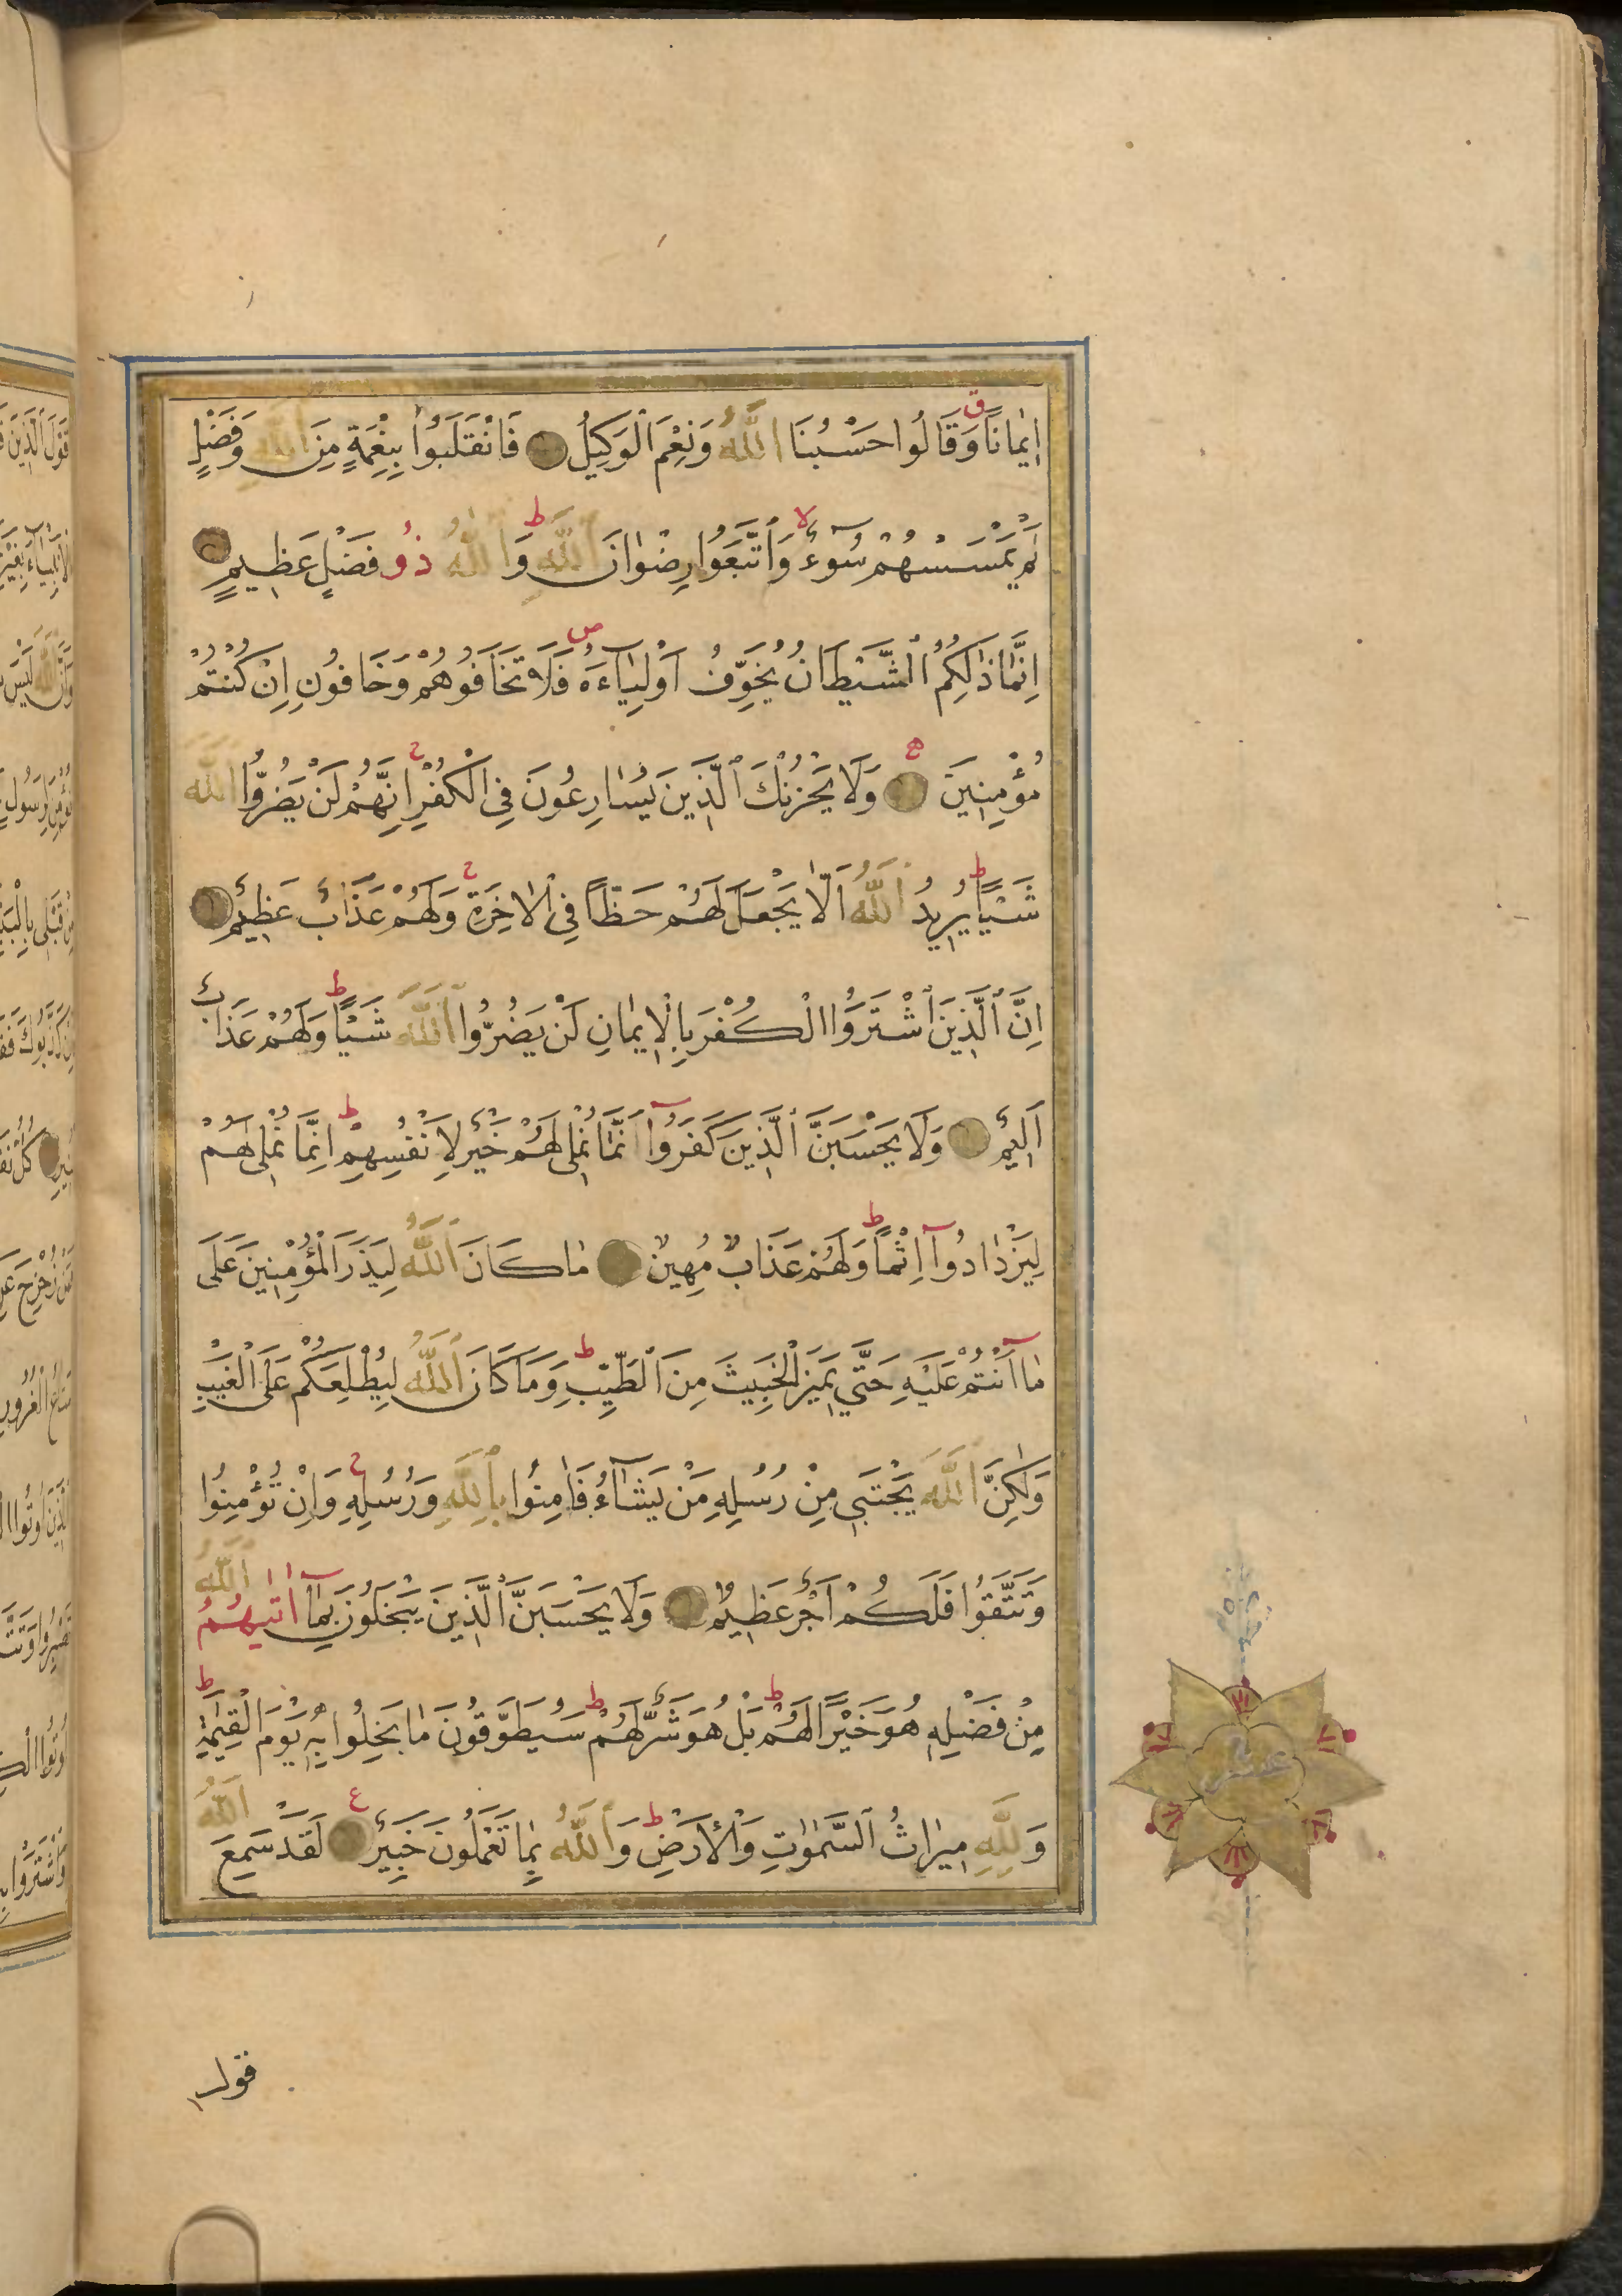 اِيمَانًا وَقَالُوا حَسْبُنَا اللّٰهُ وَنِعْمَ الْوَكِيلُ فَانْقَلَبُوا بِنِعْمَةٍ مِنَ اللّٰهِ وَفَضْلٍ
لَمْ يَمْسَسْهُمْ سُوءٌ وَاتَّبَعُوا رِضْوَانَ اللّٰهِ وَاللّٰهُ ذُو فَضْلٍ عَظِيمٍ
اِنَّمَا ذٰلِكُمُ الشَّيْطَانُ يُخَوِّفُ اَوْلِيَاءَهُ فَلَا تَخَافُوهُمْ وَخَافُونِ اِنْ كُنْتُمْ
مُؤْمِنِينَ وَلَا يَحْزُنْكَ الَّذِينَ يُسَارِعُونَ فِي الْكُفْرِ اِنَّهُمْ لَنْ يَضُرُّوا اللّٰهَ
شَيْئًا يُرِيدُ اللّٰهُ اَلَّا يَجْعَلَ لَهُمْ حَظًّا فِي الْاٰخِرَةِ وَلَهُمْ عَذَابٌ عَظِيمٌ
اِنَّ الَّذِينَ اشْتَرَوُا الْكُفْرَ بِالْاِيمَانِ لَنْ يَضُرُّوا اللّٰهَ شَيْئًا وَلَهُمْ عَذَابٌ
اَلِيمٌ وَلَا يَحْسَبَنَّ الَّذِينَ كَفَرُوا اَنَّمَا نُمْلِى لَهُمْ خَيْرٌ لِاَنْفُسِهِمْ اِنَّمَا نُمْلِى لَهُمْ
لِيَزْدَادُوا اِثْمًا وَلَهُمْ عَذَابٌ مُهِينٌ مَا كَانَ اللّٰهُ لِيَذَرَ الْمُؤْمِنِينَ عَلَى
مَا اَنْتُمْ عَلَيْهِ حَتَّى يَمِيزَ الْخَبِيثَ مِنَ الطَّيِّبِ وَمَا كَانَ اللّٰهُ لِيُطْلِعَكُمْ عَلَى الْغَيْبِ
وَلٰكِنَّ اللّٰهَ يَجْتَبِى مِنْ رُسُلِهِ مَنْ يَشَاءُ فَاٰمِنُوا بِاللّٰهِ وَرُسُلِهِ وَاِنْ تُؤْمِنُوا
وَتَتَّقُوا فَلَكُمْ اَجْرٌ عَظِيمٌ وَلَا يَحْسَبَنَّ الَّذِينَ يَبْخَلُونَ بِمَا اٰتٰيهُمُ اللّٰهُ
مِنْ فَضْلِهِ هُوَ خَيْرًا لَهُمْ بَلْ هُوَ شَرٌّ لَهُمْ سَيُطَوَّقُونَ مَا بَخِلُوا بِهِ يَوْمَ الْقِيٰمَةِ
وَلِلّٰهِ مِيرَاثُ السَّمٰوَاتِ وَالْاَرْضِ وَاللّٰهُ بِمَا تَعْمَلُونَ خَبِيرٌ لَقَدْ سَمِعَ اللّٰهُ
عشر
قول